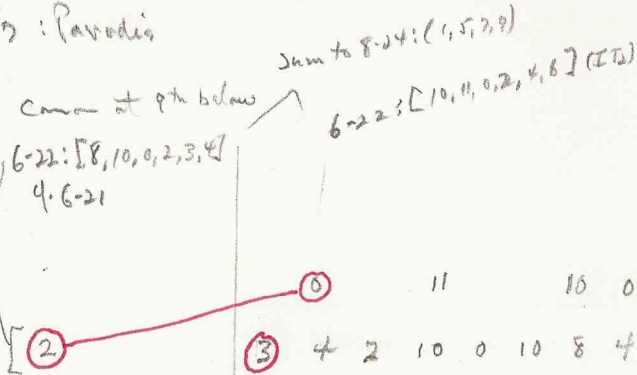 : Parodia
sum to 8-24: (1, 5, 7, 9)
canon at 9th below
6-22: [10, 11, 0, 2, 4, 6] (I T2)
6-22: [8, 10, 0, 2, 3, 4]
6-21
0 11 10 0
[ 2 3 4 2 10 0 10 8 4